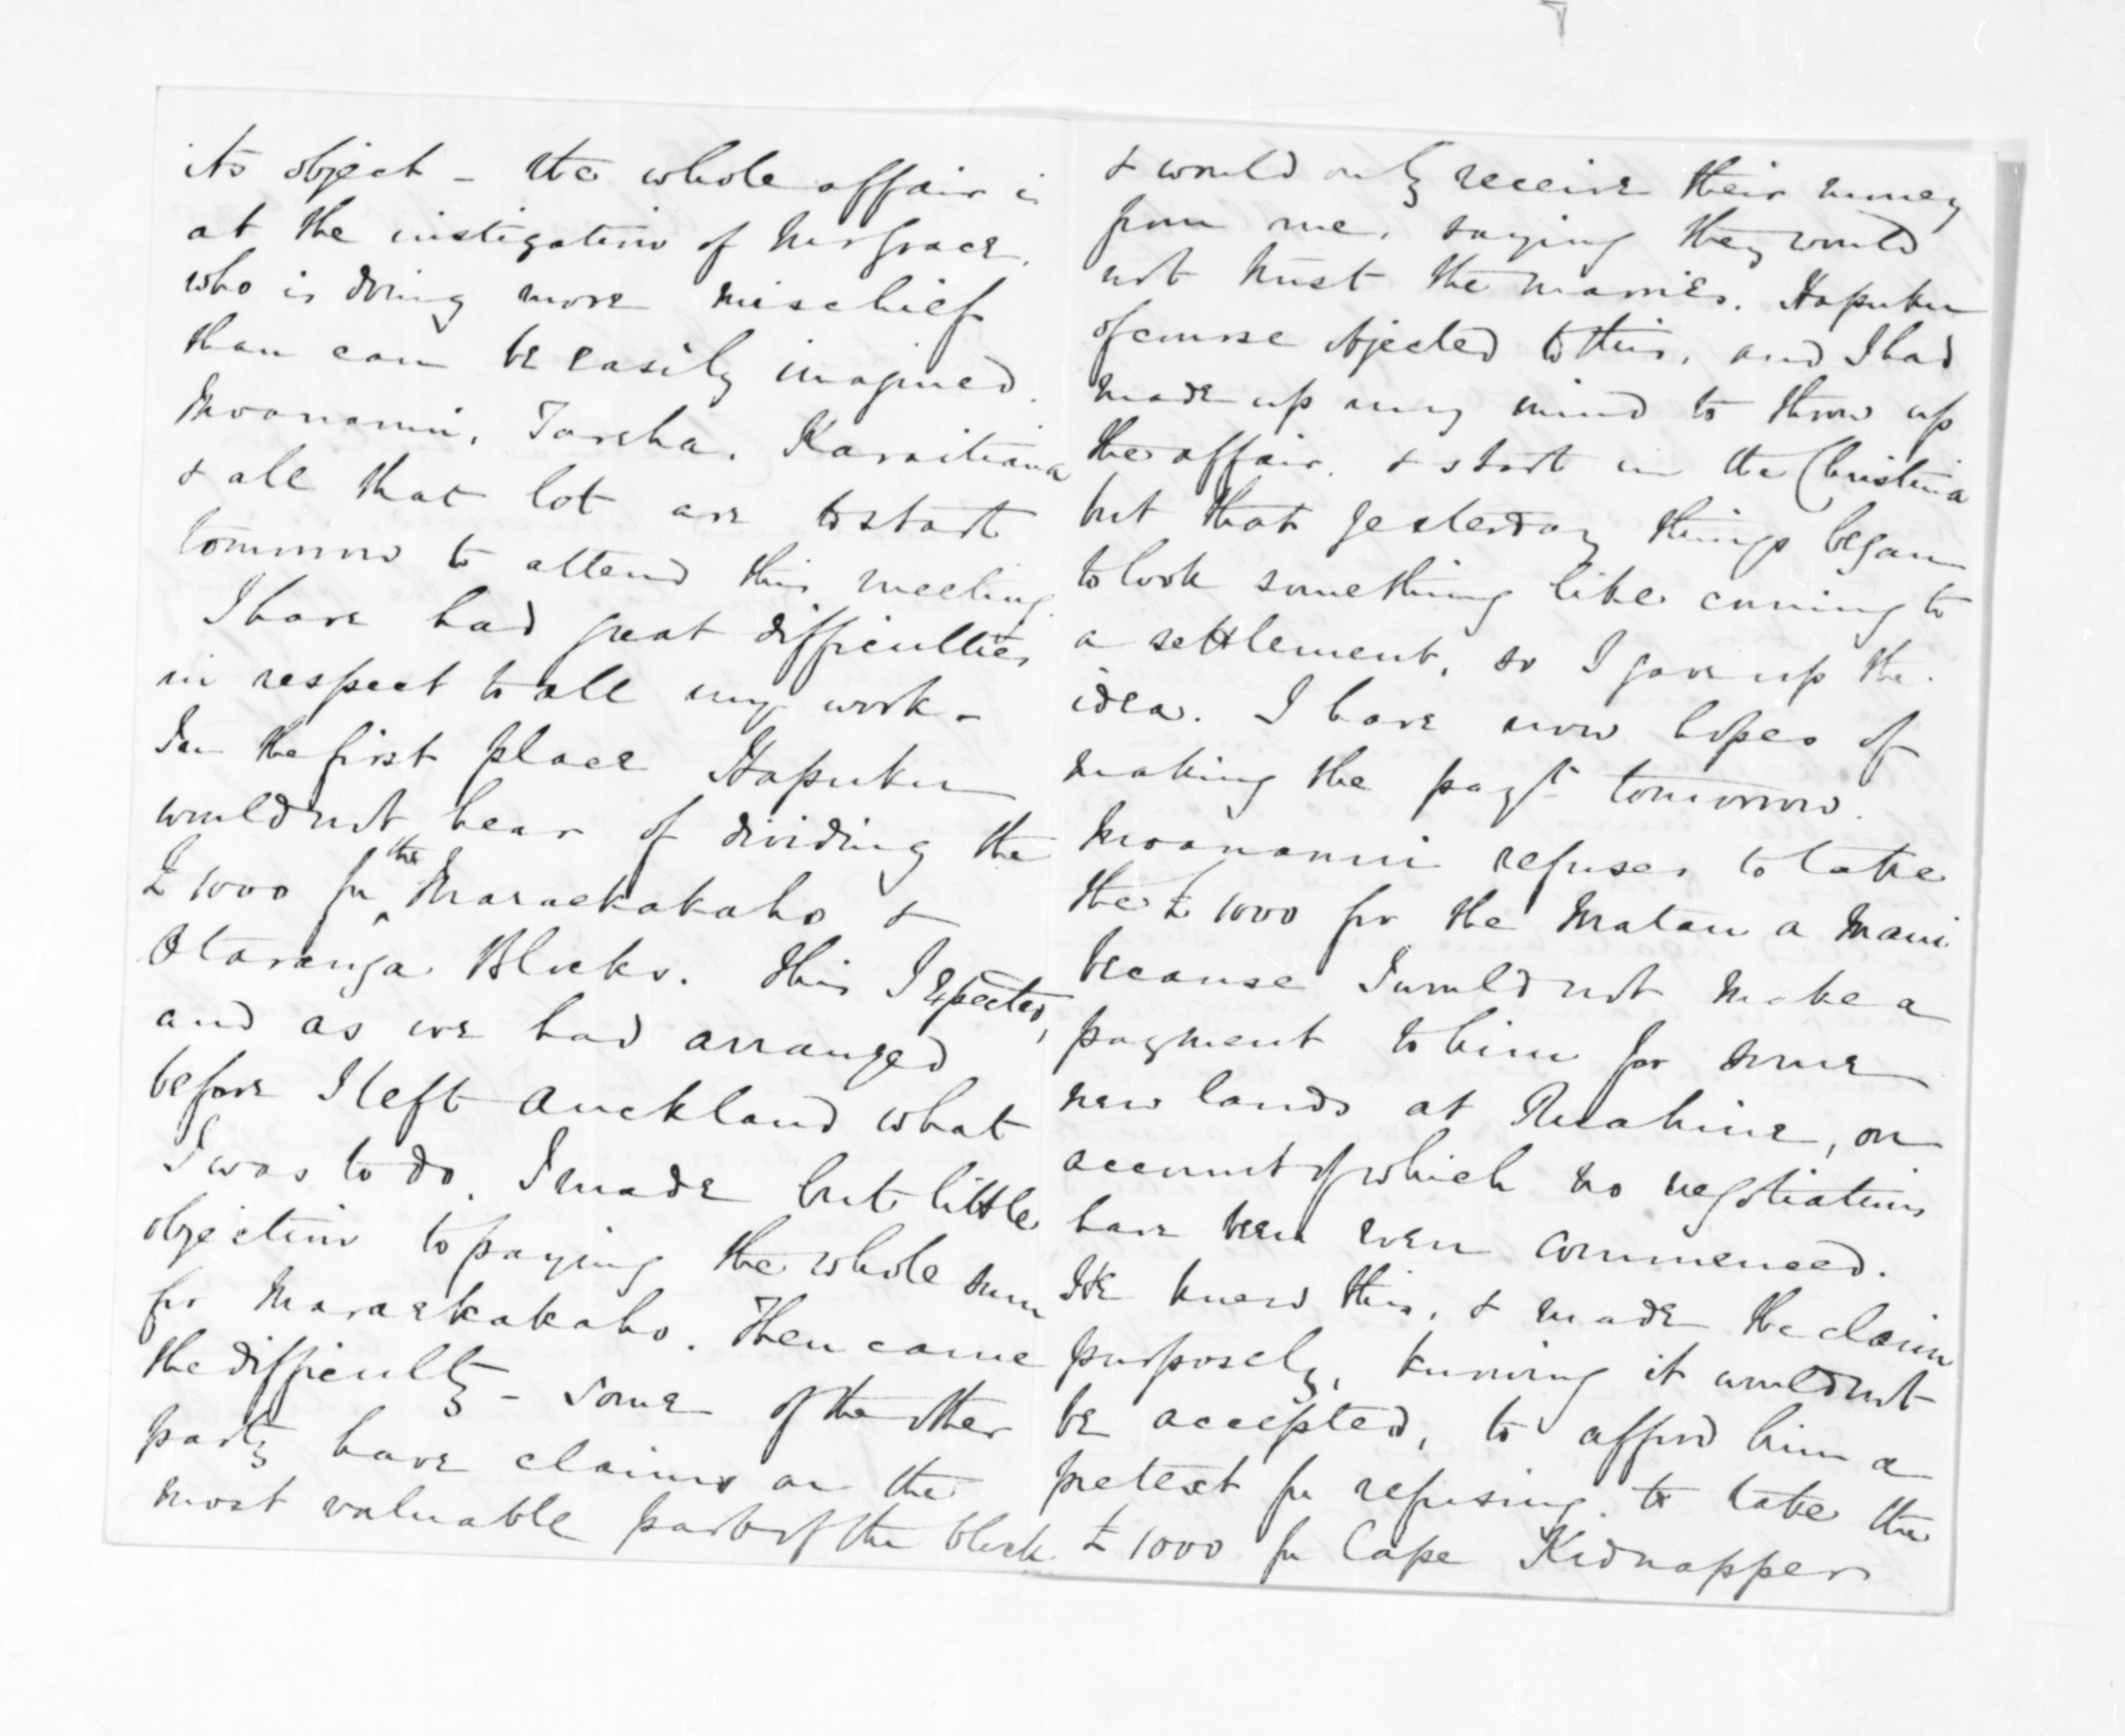 its object - the whole affair is
at the instigation of Mr Grace,
who is doing more mischief
than can be easily imagined.
Moananui, Tareha, Karaitiana
& all that lot are to start
tomorrow to attend this meeting.
I have had great difficulties
in respect to all my work -
In the first place Hapuku
would not hear of dividing the
£1000 for the Maraekakaho &
Otaranga Blocks. This I expected,
and as we had arranged
before I left Auckland what
I was to do. I made but little
objection to paying the whole sum
for Maraekakaho. Then came
the difficulty - some of the other
party have claims on the
most valuable part of the block
& would only receive their money
from me, saying they would
not trust the maories. Hapuku
of course objected to this, and I had
made up my mind to throw up
the affair, & start in the Christina
but that yesterday things began
to look something like coming to
a settlement, so I gave up the
idea. I have now hopes of
making the payt tomorrow.
Moananui refuses to take
the £1000 for the Matau a Maui
because I would not make a
payment to him for some
new lands at Ruahine, on
account of which no negotiations
have been even commenced.
He knew this, & made the claim
purposely, knowing it would not
be accepted, to afford him a
pretext for refusing to take the
£1000 for Cape Kidnapper